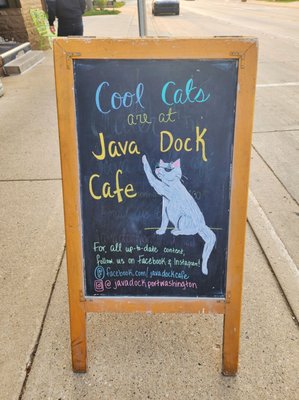 Cool Cats
are at
Java Dock
Cafe
For all up-to-date content,
follow us on Facebook & Instagram!
facebook.com/javadockcafe
@javadockportwashington